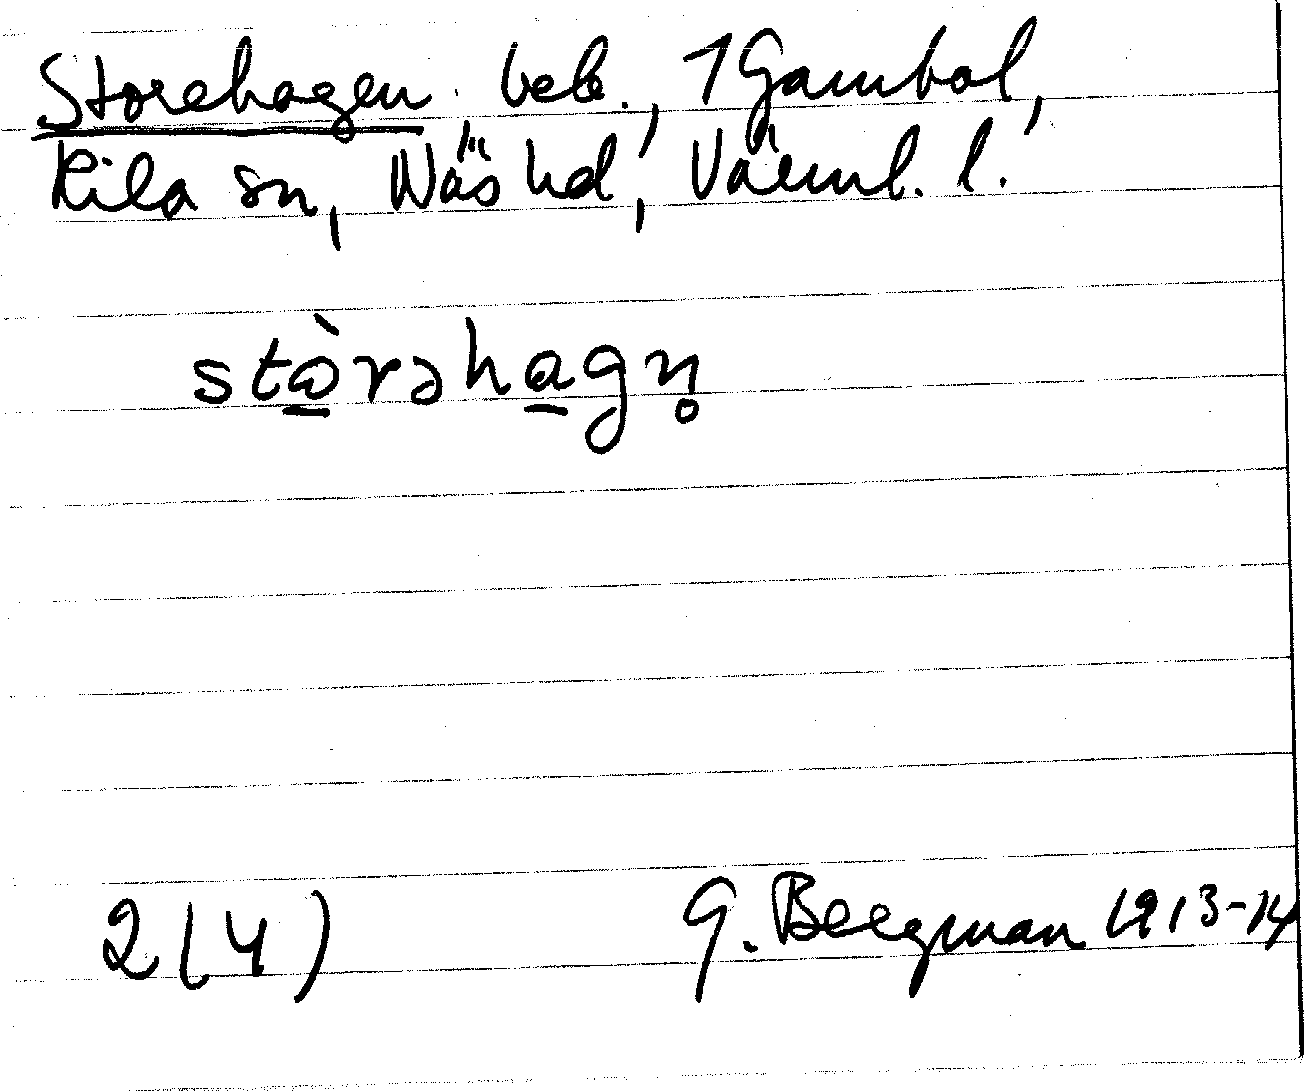 Storehagen beb., 1 Gambol,
Kila sn, Näs hd, Värml. l.
stò̱rəha̱gn̥
2(4) G. Bergman 1913-14